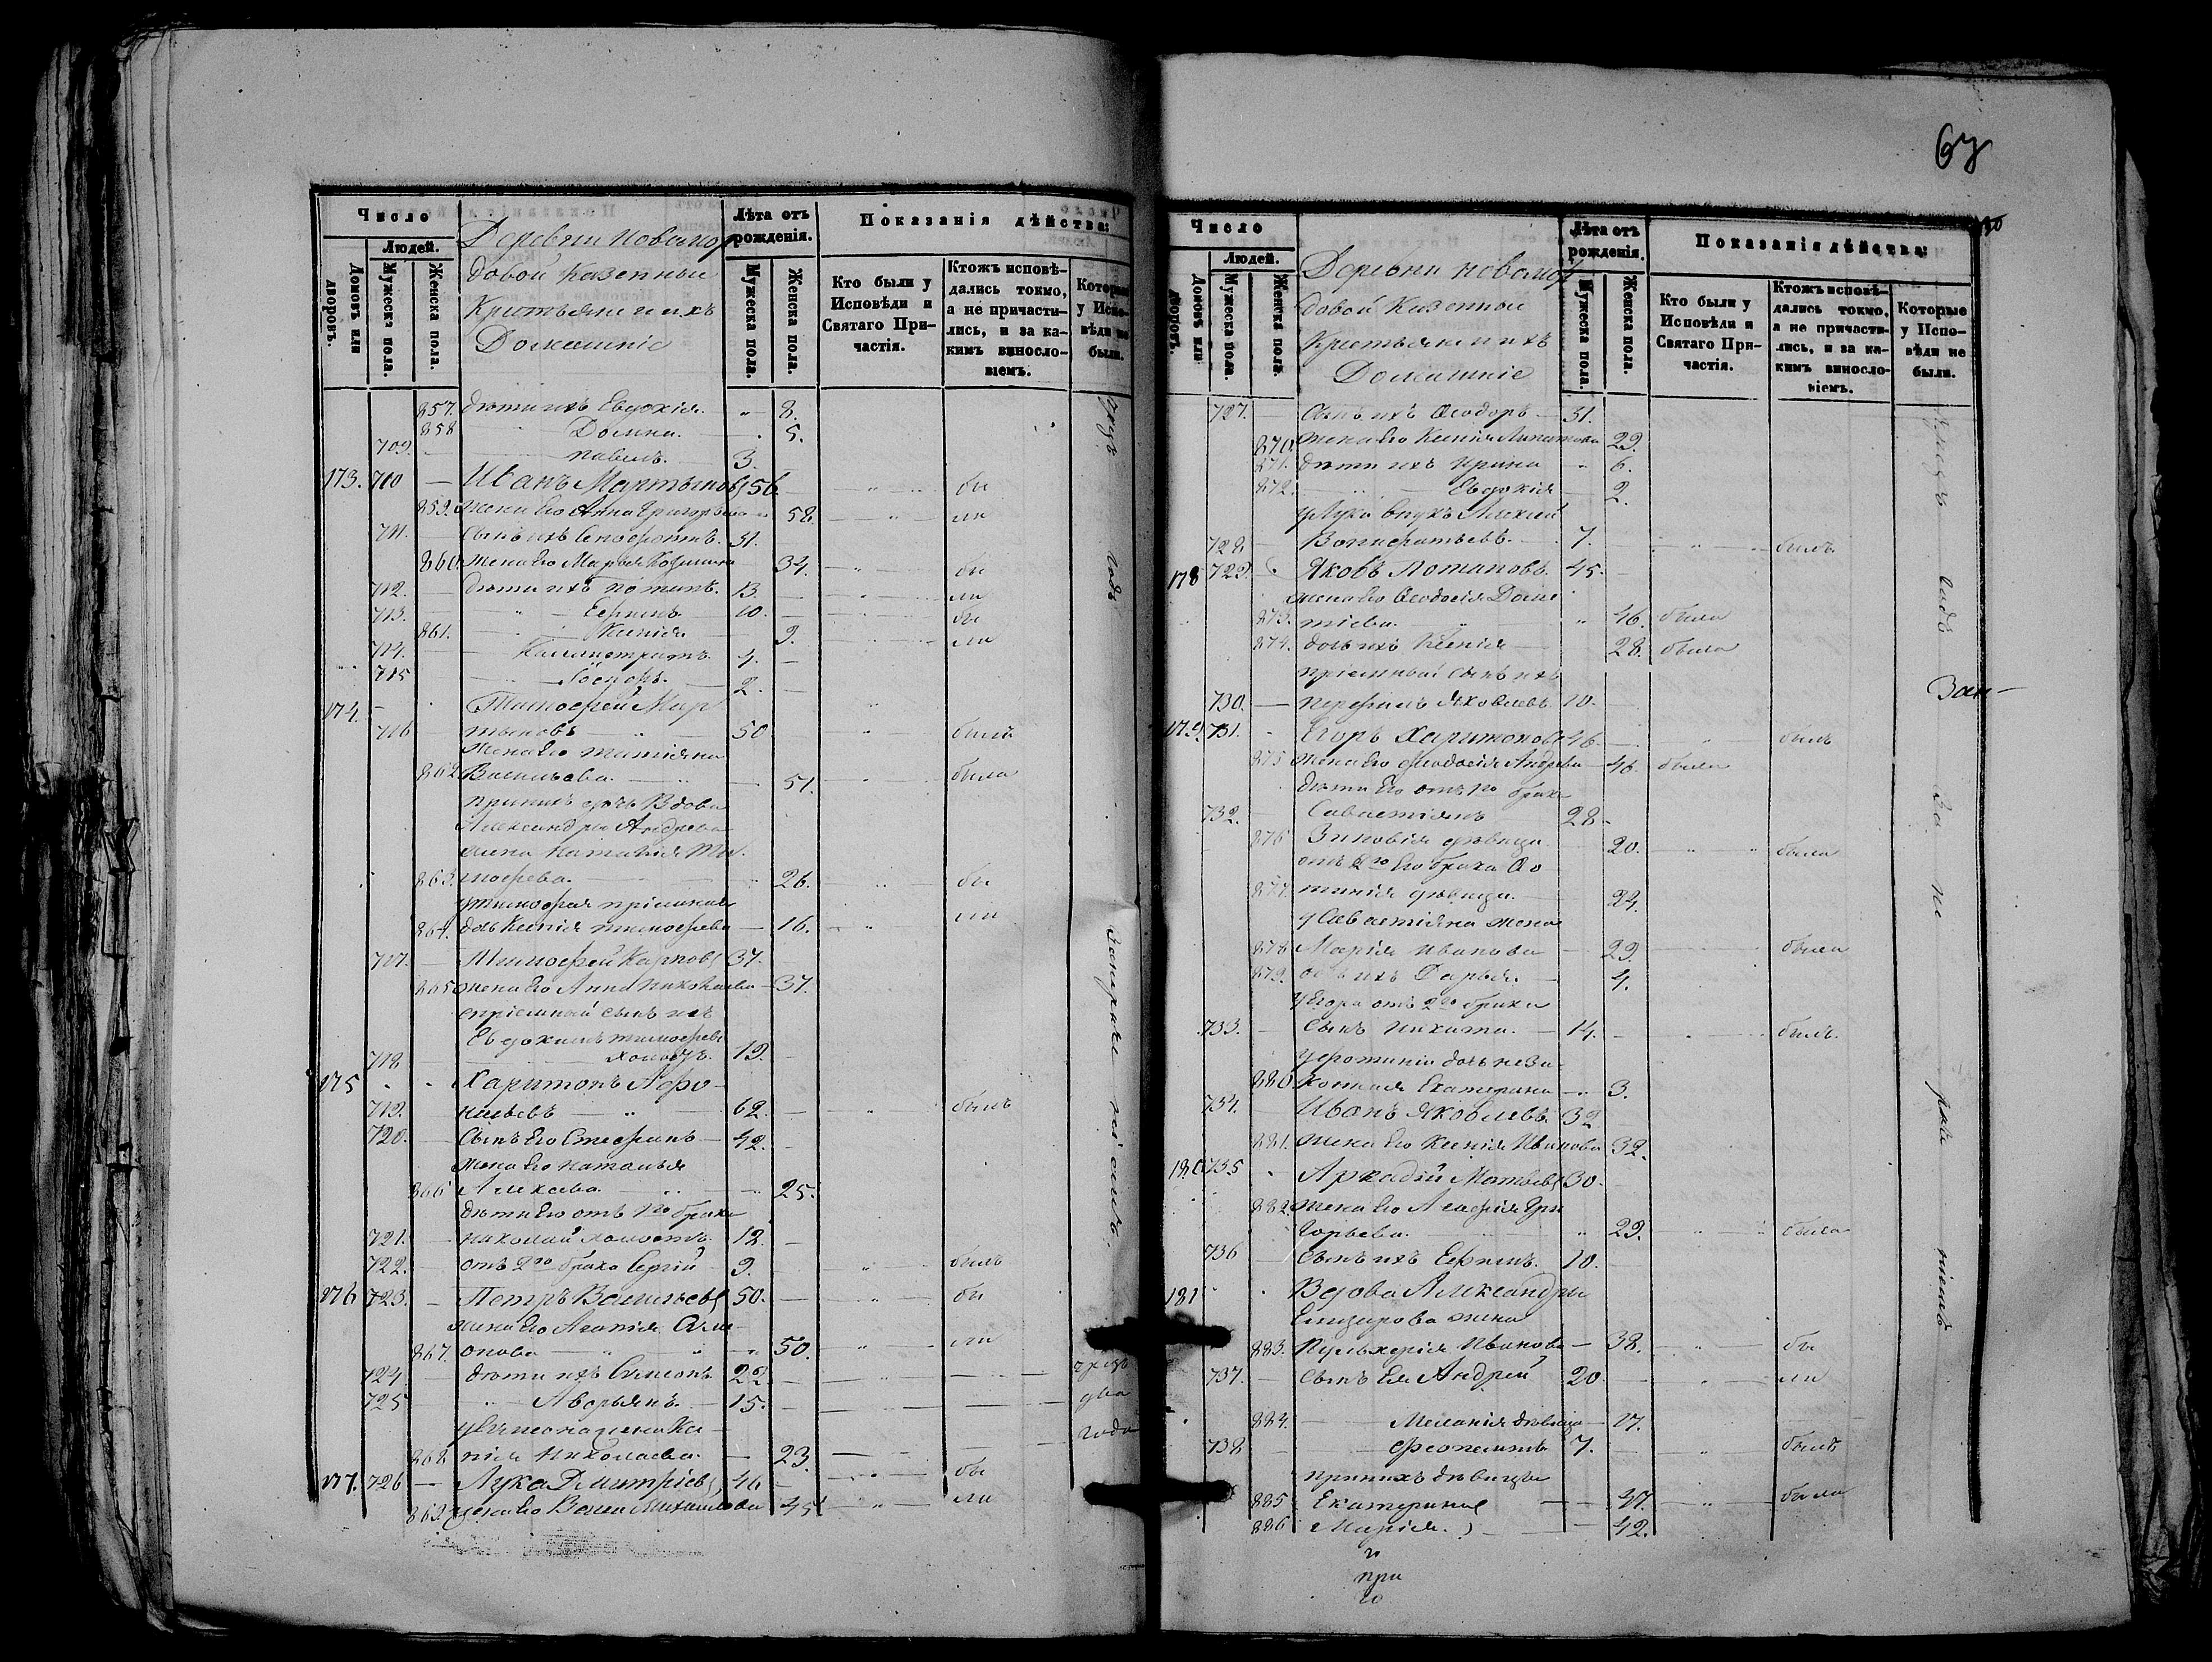 Число
Людей.
Домовъ или дворовъ.
Мужеска пола.
Женска пола.
Деревни Новомор
довой Казенныи
Крестьяне и ихъ
Домашніе
Лѣта отъ рожденія.
Мужеска пола.
Женска пола.
Показанія дѣйства:
Кто были у Исповѣди и Святаго Причастія.
Ктожъ исповѣдались токмо, а не причастились, и за какимъ винословіемъ.
Которые у Исповѣди не были.
857. дѣти ихъ Евдокія. 8.
858 Домна. 5.
709. Павелъ. 3.
173. 710 Иванъ Мартыновъ 56. бы
859. жена Его Анна Григорьева 58. ли
711. Сынъ ихъ 31.
860. жена Его Марья 34. бы
712. дѣти ихъ Потапъ. 13. ли
713. Ефимъ 10. бы
861. Ксенія 9. ли
714. Каллистратъ. 4.
715 2.
174. Тимофей Мар
716 тыновъ 50 былъ
жена Его Татіяна
862 Васильева. 51. была
при нихъ Вдова
Александры Андреева
жена Наталія Ти
863. мофеева. 26. бы
у Тимофея пріемная
864. дочь Ксенія Тимофеева 16. ли
717. Тимофей Карповъ 37.
865 жена Его Анна Николаева 37.
пріемный сынъ ихъ
Евдокимъ Тимофеевъ
718 холостъ. 19.
175 Харитонъ Афо
719. насьевъ 62. былъ
720. Сынъ Его Стефанъ 42.
жена Его Наталья
866 Алексѣева. 25.
дѣти Его отъ 1го брака
721. Николай холостъ. 19.
722. отъ 2го брака Сергій 9. былъ
176 723. Петръ Васильевъ 50. бы
жена Его Агапія Сим
867. онова 50. ли
724. дѣти ихъ Симонъ 22.
725 Аверьянъ. 15.
у Симона жена Ксе
868 нія Николаева. 23.
177. 726 Лука Дмитріевъ 46 бы
869 жена Его Михаилова 45 ли
чрезъ
годъ
чрезъ
два
года
67
Число
Людей.
Домовъ или дворовъ.
Мужеска пола.
Женска пола.
Деревни Новомор
довой Казенныи
Крестьяне и ихъ
Домашніе
Лѣта отъ рожденія.
Мужеска пола.
Женска пола.
Показанія дѣйства:
Кто были у Исповѣди и Святаго Причастія.
Ктожъ исповѣдались токмо, а не причастились, и за какимъ винословіемъ.
Которые у Исповѣди не были.
727. Сынъ ихъ Ѳеодоръ 31.
870. жена Его Ксенія 29.
871. дѣти ихъ Ирина 6.
872. Евдокія 2.
у Луки внукъ Алексѣй
728 7. былъ
178 729. Яковъ Потаповъ. 45.
жена Его Ѳеодосія Доме
873. тіева. 46. была
874. дочь ихъ Ксенія 28. была
пріемный сынъ ихъ
730. Перфилъ Яковлевъ 10.
179. 731. Егоръ Харитоновъ 46. былъ
875 жена Его Ѳеодосія Андреева 46. была
дѣти Его отъ 1го брака
732. Савастіянъ 28.
876 Зиновія дѣвица 20. была
отъ 2го Его брака Фо
877. тинія дѣвица. 24.
у Савастіяна жена
878 Марія Иванова 29. была
879. дочь ихъ Дарья 4.
у Егора отъ 2го брака
733. Сынъ Никита. 14. былъ.
у Фотиніи дочь неза
880 конная Екатерина 3.
734. Иванъ Яковлевъ. 32
881. жена Его Ксенія Иванова 32.
180 735 Аркадій Матвѣевъ 30.
882. жена Его Агафія Гри
горьева. 29. была
736 сынъ ихъ Ефимъ. 10.
181 Вдова Александры
жена
883. Пульхерія Иванова 38. бы
737. сынъ Ея Андрей 20. ли
884. Меланія дѣвица 17.
738 Феопемптъ 7. былъ
при нихъ дѣвицы
885 Екатерина 47. была
886 Марія. 42.
чрезъ
годъ
Зан
За
не
ра
ніемъ
го
при
го